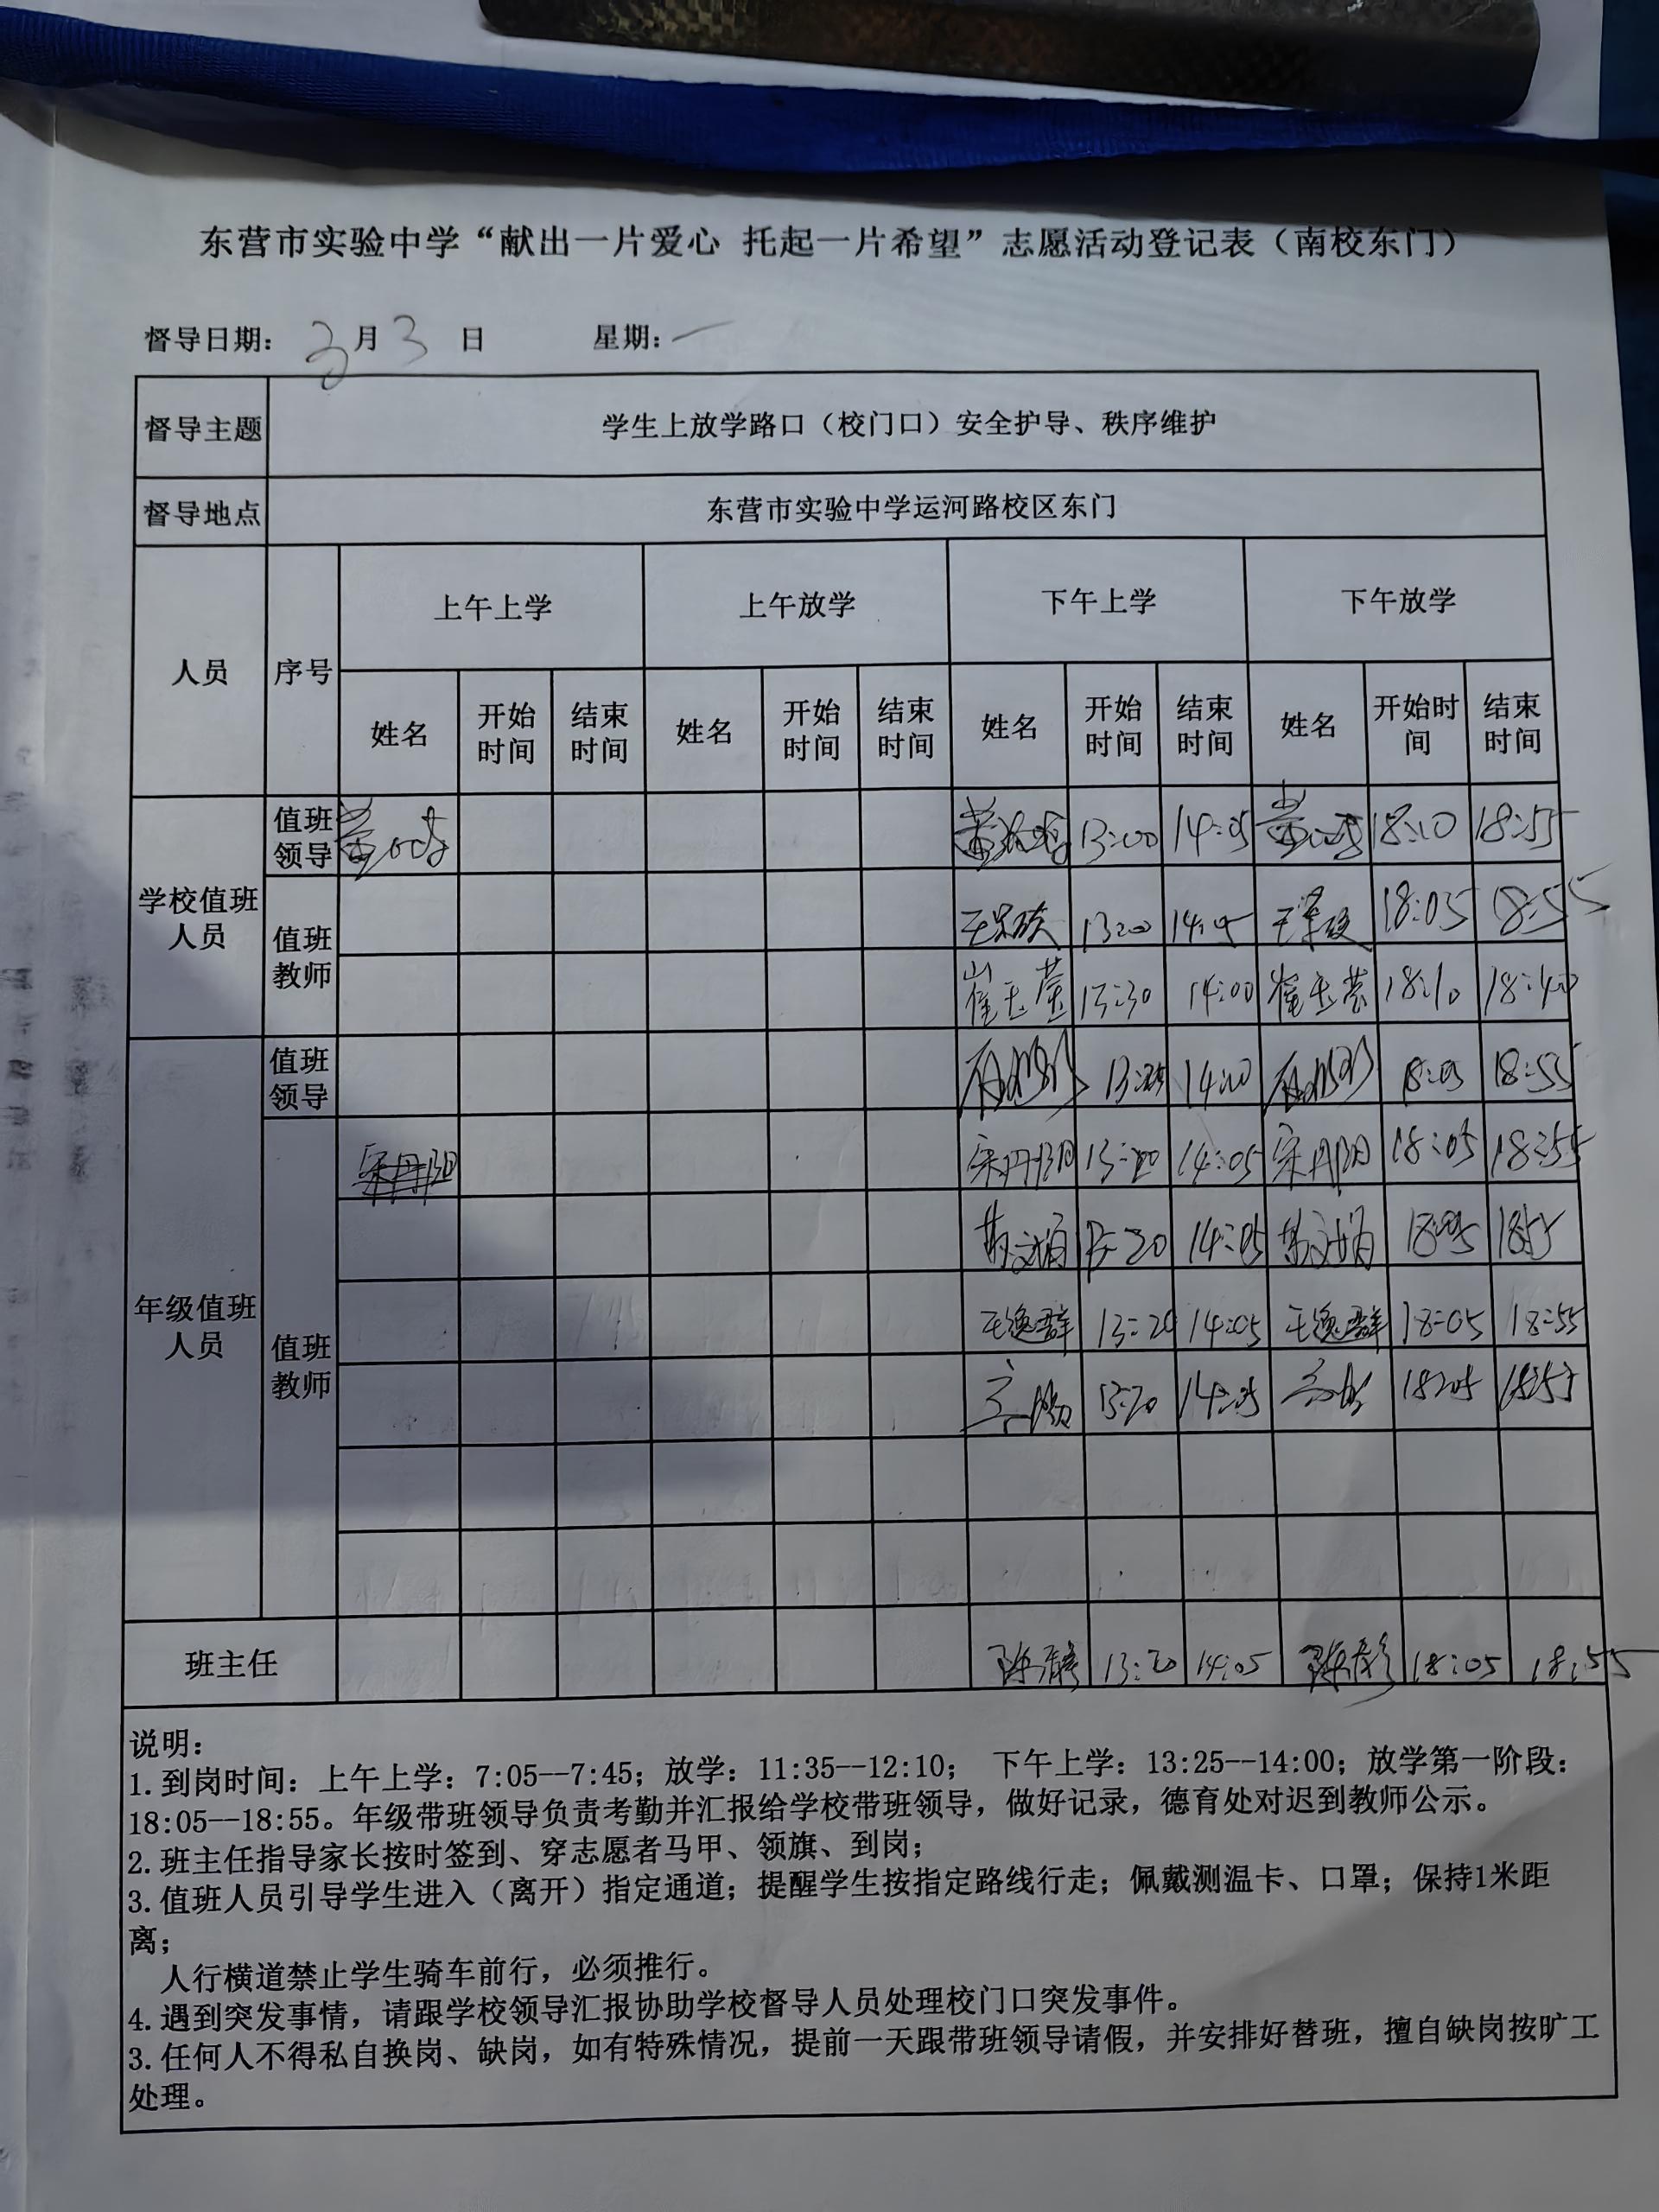 东营市实验中学“献出一片爱心 托起一片希望”志愿活动登记表（南校东门）
督导日期： 月 3 日 星期：一
督导主题 学生上放学路口（校门口）安全护导、秩序维护
督导地点 东营市实验中学运河路校区东门
人员 序号 上午上学 上午放学 下午上学 下午放学
姓名 开始时间 结束时间 姓名 开始时间 结束时间 姓名 开始时间 结束时间 姓名 开始时间 结束时间
学校值班人员 值班领导 13:00 14:05 18:10 18:55
值班教师 13:00 14:05 18:05 18:55
崔玉莹 13:30 14:00 崔玉莹 18:10 18:40
年级值班人员 值班领导 14:00 18:05 18:55
值班教师 宋丹阳 宋丹阳 13:20 14:05 宋丹阳 18:05 18:55
13:20 14:05 18:05 18:55
王逸群 13:20 14:05 王逸群 18:05 18:55
13:20 14:05 18:05 18:55
班主任 13:20 14:05 18:05 18:55
说明：
1.到岗时间：上午上学：7:05--7:45；放学：11:35--12:10； 下午上学：13:25--14:00；放学第一阶段：
18:05--18:55。年级带班领导负责考勤并汇报给学校带班领导，做好记录，德育处对迟到教师公示。
2.班主任指导家长按时签到、穿志愿者马甲、领旗、到岗；
3.值班人员引导学生进入（离开）指定通道；提醒学生按指定路线行走；佩戴测温卡、口罩；保持1米距
离；
人行横道禁止学生骑车前行，必须推行。
4.遇到突发事情，请跟学校领导汇报协助学校督导人员处理校门口突发事件。
3.任何人不得私自换岗、缺岗，如有特殊情况，提前一天跟带班领导请假，并安排好替班，擅自缺岗按旷工
处理。